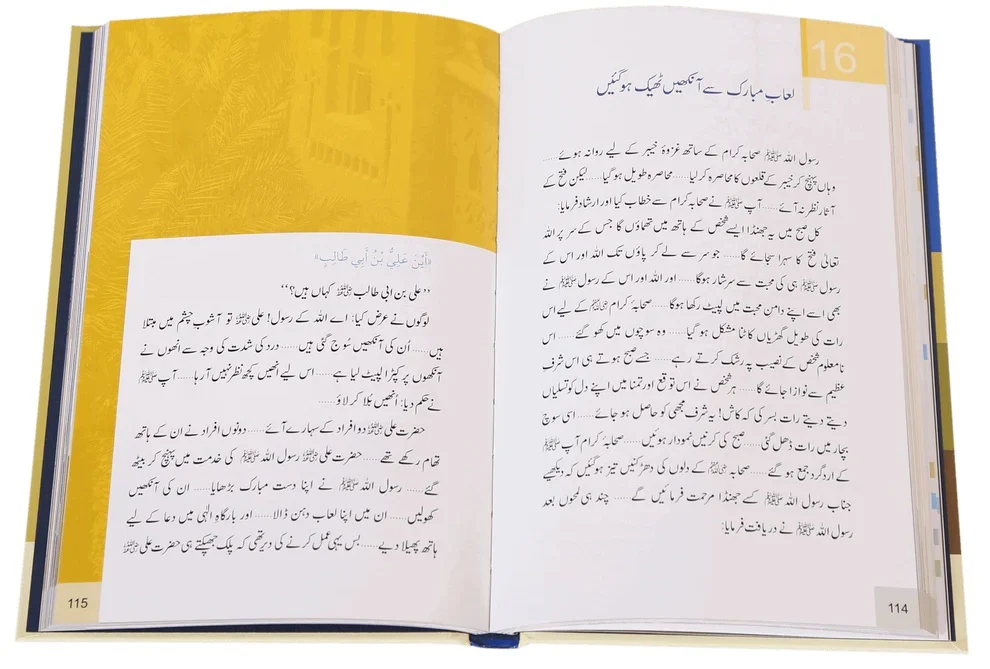 16
لعاب مبارک سے آنکھیں ٹھیک ہوگئیں
رسول اللہ ﷺ صحابہ کرام کے ساتھ غزوۂ خیبر کے لیے روانہ ہوئے.....
وہاں پہنچ کر خیبر کے قلعوں کا محاصرہ کرلیا..... محاصرہ طویل ہوگیا..... لیکن فتح کے
آثار نظر نہ آئے..... آپ ﷺ نے صحابہ کرام سے خطاب کیا اور ارشاد فرمایا:
کل صبح میں یہ جھنڈا ایسے شخص کے ہاتھ میں تھماؤں گا جس کے سر پر اللہ
تعالیٰ فتح کا سہرا سجائے گا..... جو سر سے لے کر پاؤں تک اللہ اور اس کے
رسول ﷺ ہی کی محبت سے سرشار ہوگا..... اور اللہ اور اس کے رسول ﷺ نے
بھی اسے اپنے دامن محبت میں لپیٹ رکھا ہوگا..... صحابۂ کرام کے لیے اس
رات کی طویل گھڑیاں کاٹنا مشکل ہو گیا..... وہ سوچوں میں کھو گئے..... اس
نامعلوم شخص کے نصیب پہ رشک کرتے رہے..... جسے صبح ہوتے ہی اس شرف
عظیم سے نوازا جائے گا..... ہر شخص نے اس توقع اور تمنا میں اپنے دل کو تسلیاں
دیتے دیتے رات بسر کی کہ کاش! یہ شرف مجھی کو حاصل ہو جائے..... اسی سوچ
بچار میں رات ڈھل گئی..... صبح کی کرنیں نمودار ہوئیں..... صحابۂ کرام آپ ﷺ
کے اردگرد جمع ہو گئے..... صحابہ کے دلوں کی دھڑکنیں تیز ہوگئیں کہ دیکھیے
جناب رسول اللہ ﷺ کسے جھنڈا مرحمت فرمائیں گے..... چند ہی لمحوں بعد
رسول اللہ ﷺ نے دریافت فرمایا:
114
«أَيْنَ عَلِيُّ بْنُ أَبِي طَالِبٍ»
”علی بن ابی طالب کہاں ہیں؟“
لوگوں نے عرض کیا: اے اللہ کے رسول! علی تو آشوب چشم میں مبتلا
ہیں..... اُن کی آنکھیں سُوج گئی ہیں..... درد کی شدت کی وجہ سے انھوں نے
آنکھوں پر کپڑا لپیٹ لیا ہے..... اس لیے انھیں کچھ نظر نہیں آ رہا..... آپ ﷺ
نے حکم دیا: اُنھیں بُلا کر لاؤ.....
حضرت علی دو افراد کے سہارے آئے..... دونوں افراد نے ان کے ہاتھ
تھام رکھے تھے..... حضرت علی رسول اللہ ﷺ کی خدمت میں پہنچ کر بیٹھ
گئے..... رسول اللہ ﷺ نے اپنا دست مبارک بڑھایا..... ان کی آنکھیں
کھولیں..... ان میں اپنا لعاب دہن ڈالا..... اور بارگاہِ الٰہی میں دعا کے لیے
ہاتھ پھیلا دیے..... بس یہی عمل کرنے کی دیر تھی کہ پلک جھپکتے ہی حضرت علی
115